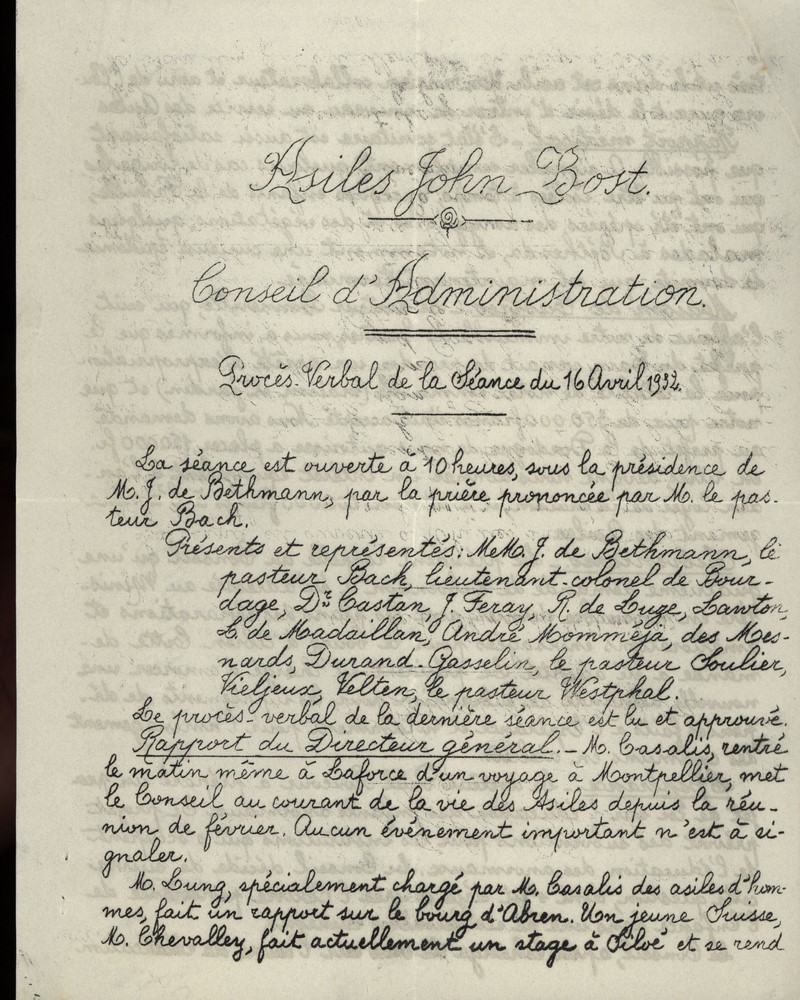 Asiles John Bost.
Conseil d'Administration.
Procès-Verbal de la Séance du 16 Avril 1932.
La séance est ouverte à 10 heures, sous la présidence de
M. J. de Bethmann, par la prière prononcée par M. le pas-
teur Bach.
Présents et représentés: MeM. J. de Bethmann, le
pasteur Bach, lieutenant-colonel de Bour-
dage, Dr Castan, J. Feray, R. de Luze, Lawton,
L. de Madaillan, André Momméja, des Mes-
nards, Durand-Gasselin, le pasteur Soulier,
Vieljeux, Velten, le pasteur Westphal.
Le procès-verbal de la dernière séance est lu et approuvé.
Rapport du Directeur général. - M. Casalis, rentré
le matin même à Laforce d'un voyage à Montpellier, met
le Conseil au courant de la vie des Asiles depuis la réu-
nion de février. Aucun événement important n'est à si-
gnaler.
M. Lung, spécialement chargé par M. Casalis des asiles d'hom-
mes, fait un rapport sur le bourg d'Abren. Un jeune Suisse,
M. Chevalley, fait actuellement un stage à Siloé et se rend